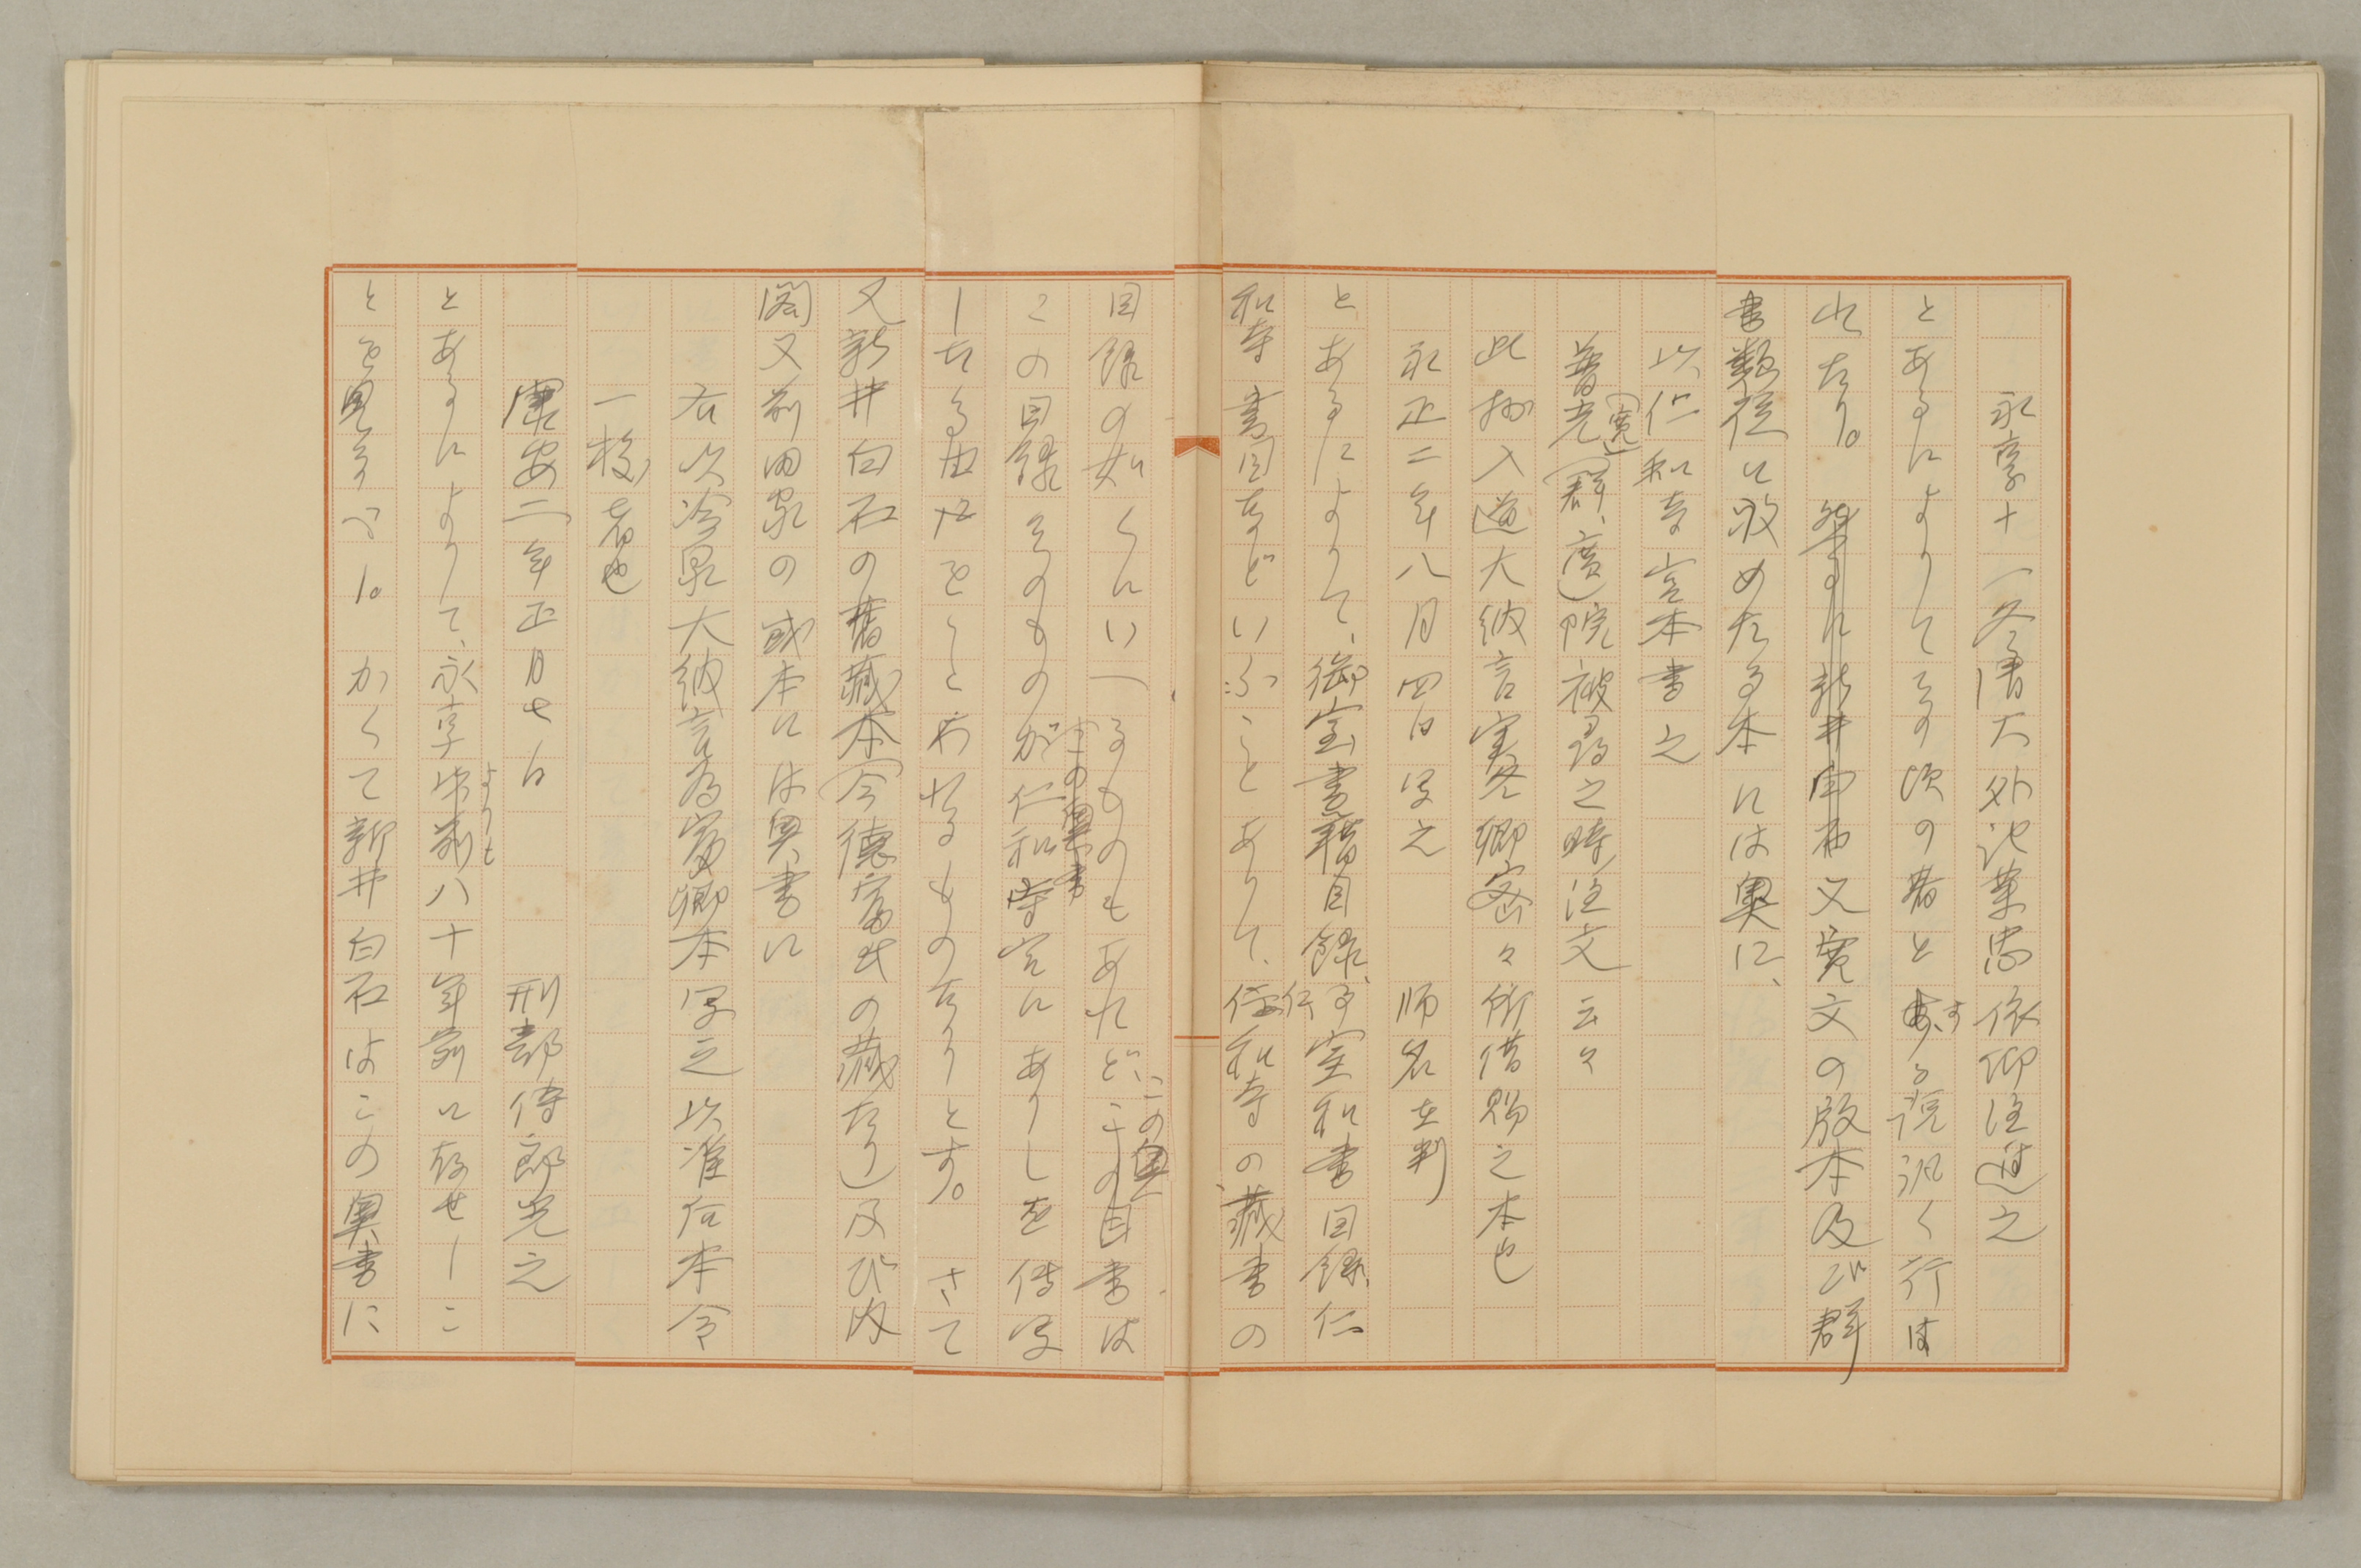 永享十一冬清大外記業忠依仰注進之
とあるによりてその頃の著とする説汎く行は
れたり。然るに新井白石又寛文の版本及び群
書類従に収めたる本には奥に、
以仁和寺宮本書之
普光(寛)(群、廣)院被尋之時注文云々
此抄入道大納言実冬卿密々所借賜之本也
永正二年八月四日写之 師名在判
とあるによりて、御室書籍目録、御室和書目録、仁
和寺書目などいふことありて、仁和寺の蔵書の
目録の如くにいへるものもあれどこの奥書は
この目録そのものが仁和寺宮にありしを伝写
したる由をことわれるものなりとす。 さて
又新井白石の旧蔵本(今徳富氏の蔵なり)及び内
閣又前田家の或本には奥書に
右以冷泉大納言為富卿本写之以准何本令
一校者也
康安二年正月七日 刑部侍郎光之
とあるによりて、永享よりも八十年前に存せしこ
とを見るべし。 かくて新井白石はこの奥書に